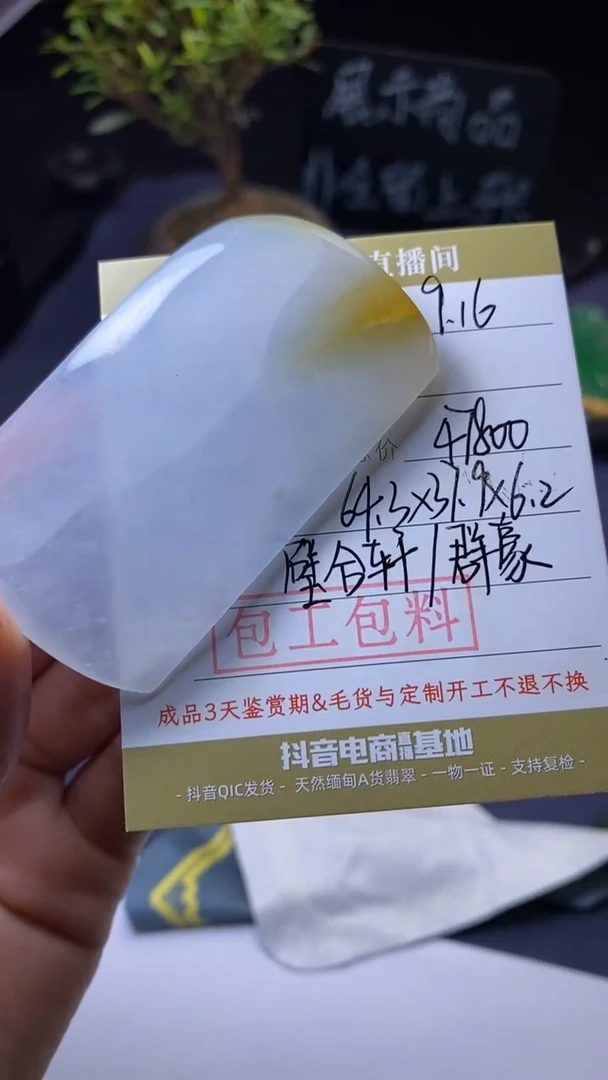 展示商品
直播间
9.16
价 47800
64.3×31.9×6.2
璧合轩/群豪
包工包料
成品3天鉴赏期&毛货与定制开工不退不换
抖音电商直播基地
- 抖音QIC发货 - 天然缅甸A货翡翠 - 一物一证 - 支持复检 -